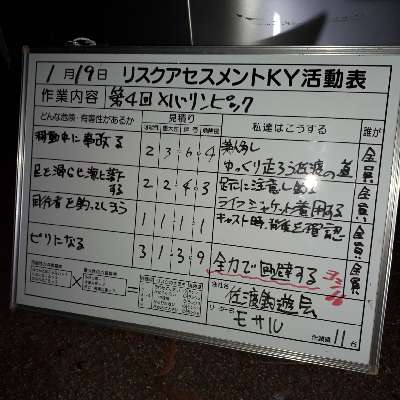 1月19日 リスクアセスメントKY活動表
作業内容 第4回メバリンピック
どんな危険・有害性があるか 見積り 私達はこうする 誰が
移動中に事故る 2 3 6 4 ゆっくり走ろう佐渡の道 全員
足を滑らせ海に落下する 2 2 4 3 足元に注意し
ライフジャケット着用する 全員
同行者を釣ってしまう 1 1 1 1 キャスト時、背後を確認 全員
ビリになる 3 1 3 9 全力で回避する
会社名 佐渡釣遊会
リーダー名 モサル
作業員 11名